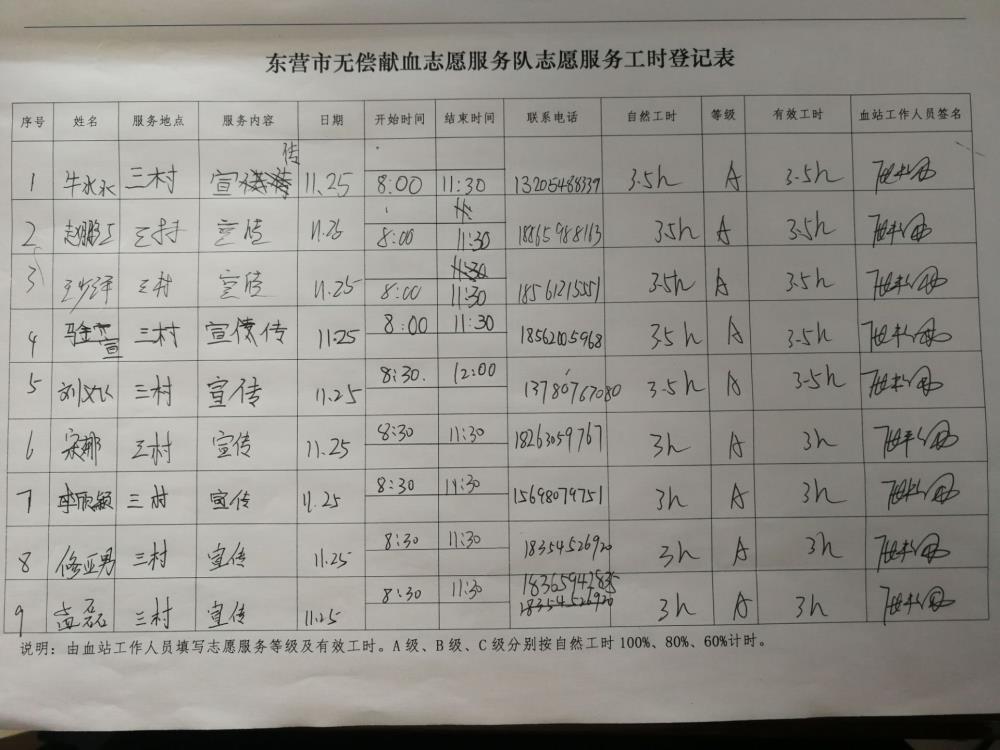 东营市无偿献血志愿服务队志愿服务工时登记表
序号 姓名 服务地点 服务内容 日期 开始时间 结束时间 联系电话 自然工时 等级 有效工时 血站工作人员签名
1 牛水水 三村 宣传 11.25 8:00 11:30 13205488339 3.5h A 3.5h
2 三村 宣传 11.25 8:00 11:30 18865988163 3.5h A 3.5h
3 三村 宣传 11.25 8:00 11:30 18561215551 3.5h A 3.5h
4 三村 宣传 11.25 8:00 11:30 18562005968 3.5h A 3.5h
5 三村 宣传 11.25 8:30 12:00 13780767080 3.5h A 3.5h
6 宋娜 三村 宣传 11.25 8:30 11:30 18263059767 3h A 3h
7 李欣颖 三村 宣传 11.25 8:30 11:30 15698079751 3h A 3h
8 修亚男 三村 宣传 11.25 8:30 11:30 18354526920 3h A 3h
9 孟磊 三村 宣传 11.25 8:30 11:30 3h A 3h
说明：由血站工作人员填写志愿服务等级及有效工时。A级、B级、C级分别按自然工时100%、80%、60%计时。